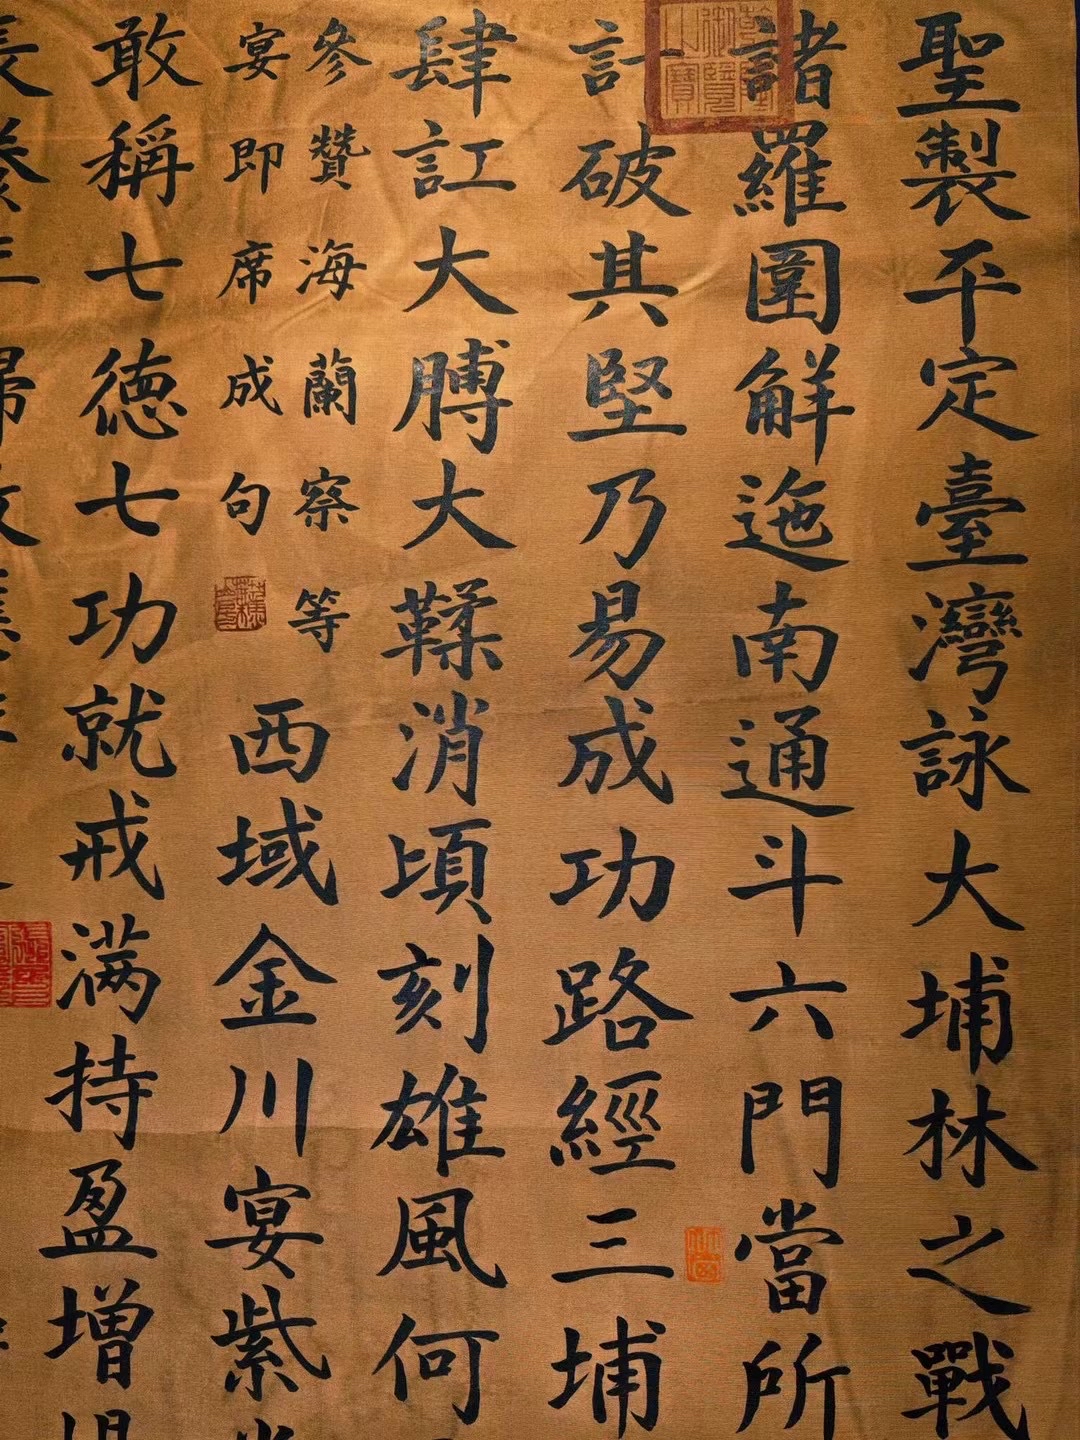 聖製平定臺灣詠大埔林之戰
諸羅圍解迤南通斗六門當所
計破其堅乃易成功路經三埔
肆訌大膊大鞣消頃刻雄風何
參贊海蘭察等
宴即席成句
西域金川宴紫
敢稱七德七功就戒滿持盈增